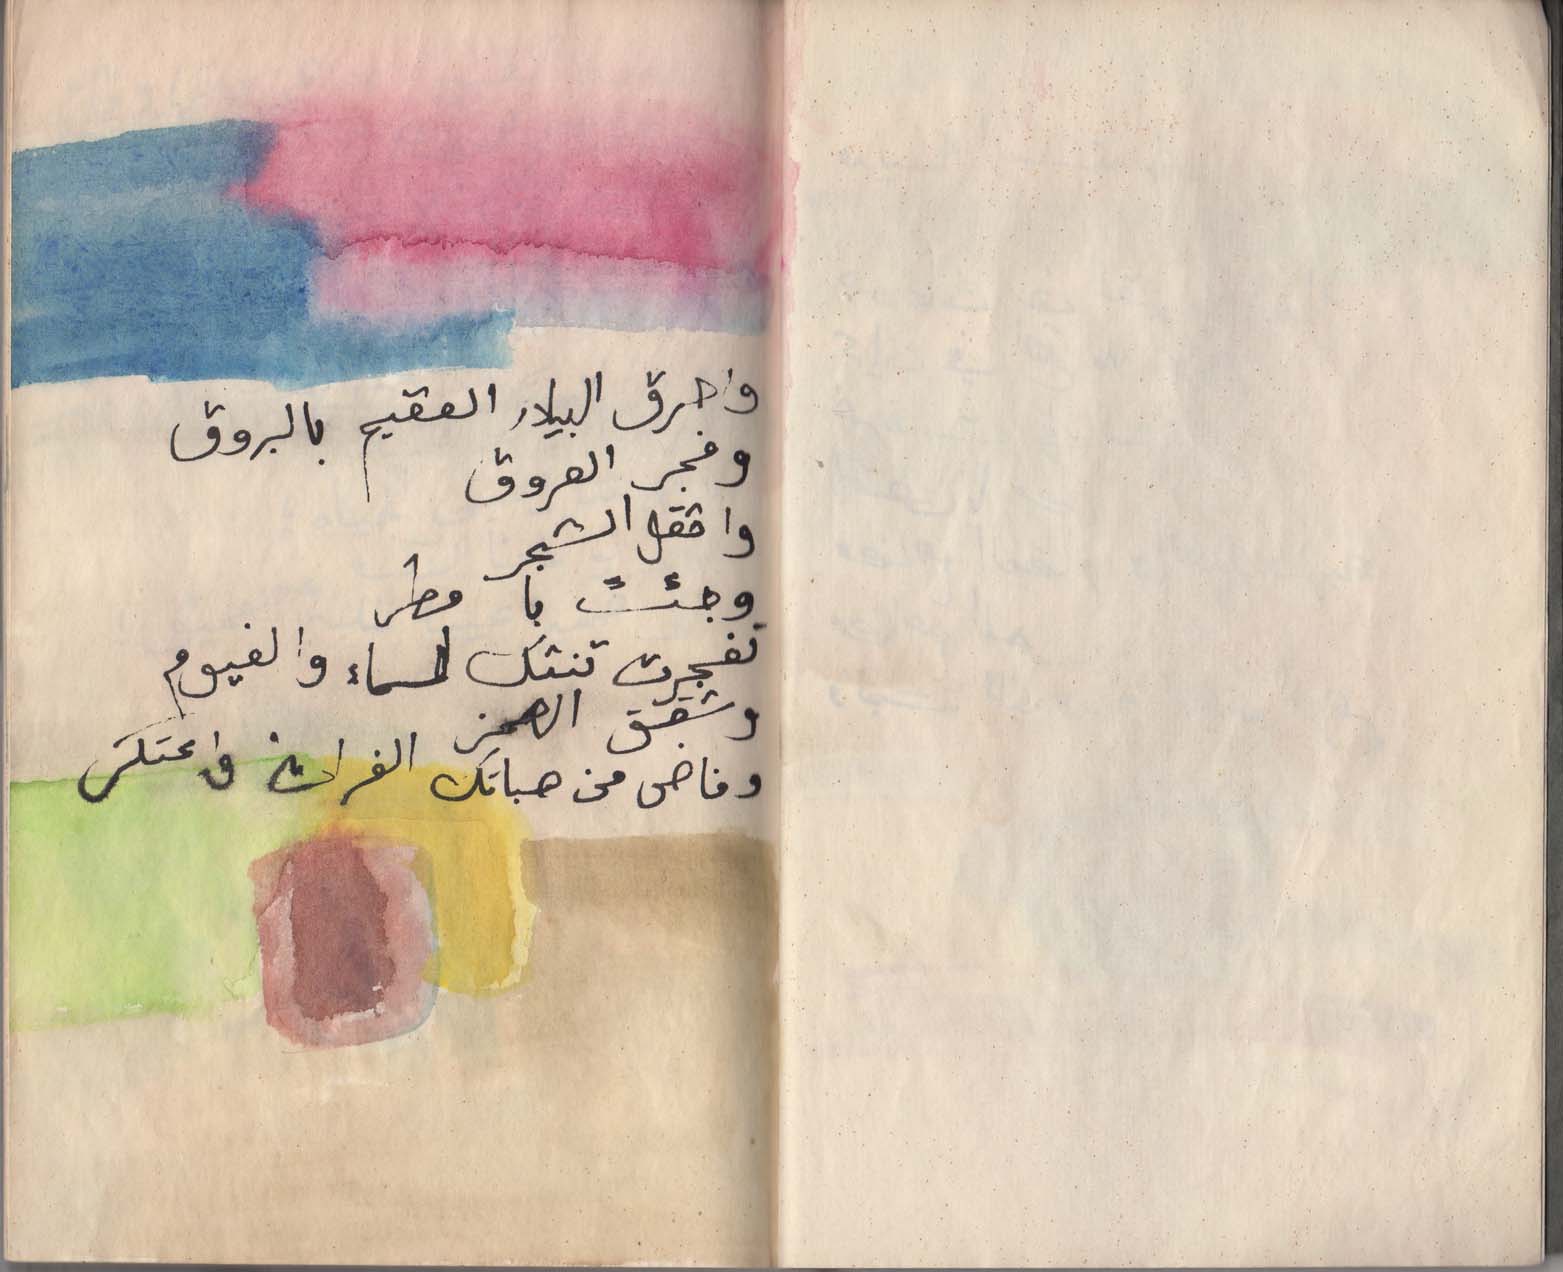 واحرق البيادر العقيم بالبروق
وفجر العروق
واثقل الشجر
وجئت يا مطر
تفجرت تنثك السماء والغيوم
وشقق الصخر
وفاض من هباتك الفرات واعتكر